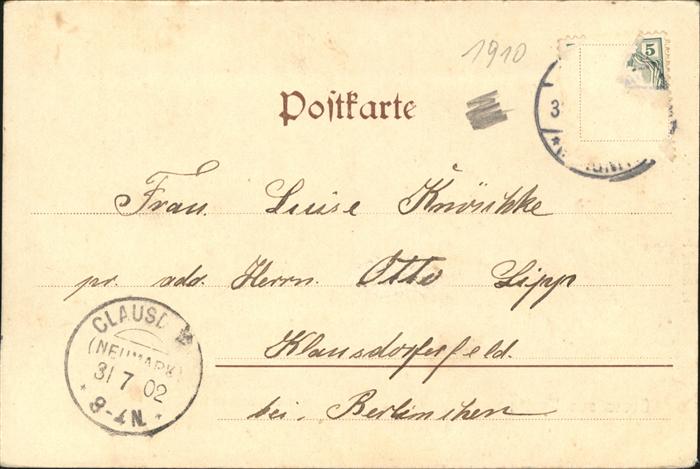 1910
5
Postkarte
3
Frau. Luise Knöschke
pr. adr. Herrn. Otto Lipp
Klausdorferfeld.
bei. Berlinchen
CLAUSD
(NEUMARK)
31 7 02
8-1N.